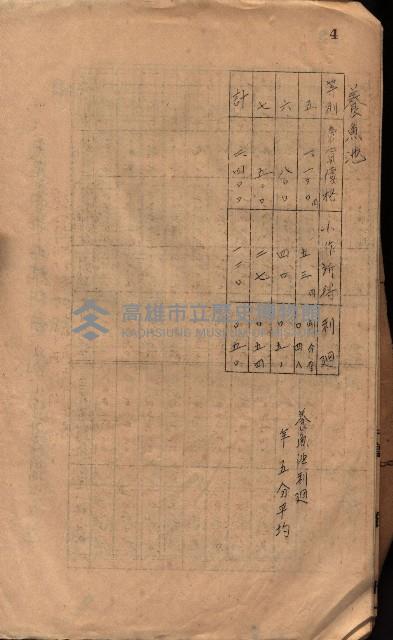 4
養魚池
等別 賣買價格 小作所得 利廻
五 一一〇〇円 五三円 〇四八
六 八〇〇 四〇 〇五〇
七 五〇〇 二七 〇五四
計 二四〇〇 一二〇 〇五〇
養魚池利廻
年五分平均
高雄市立歷史博物館
KAOHSIUNG MUSEUM OF HISTORY